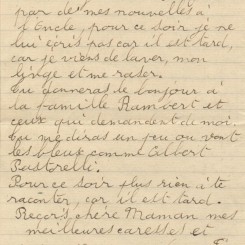 par de mes nouvelles à
l'Oncle, pour ce soir je ne
lui écris pas car il est tard,
car je viens de laver, mon
linge et me raser.
Tu donneras le bonjour à
la famille Rambert et
ceux qui demandent de moi.
Tu me diras un peu ou vont
les bleux comme Albert
Pastorelli.
Pour ce soir plus rien à te
raconter, car il est tard.
Reçois, chère Maman mes
meilleures caresses et